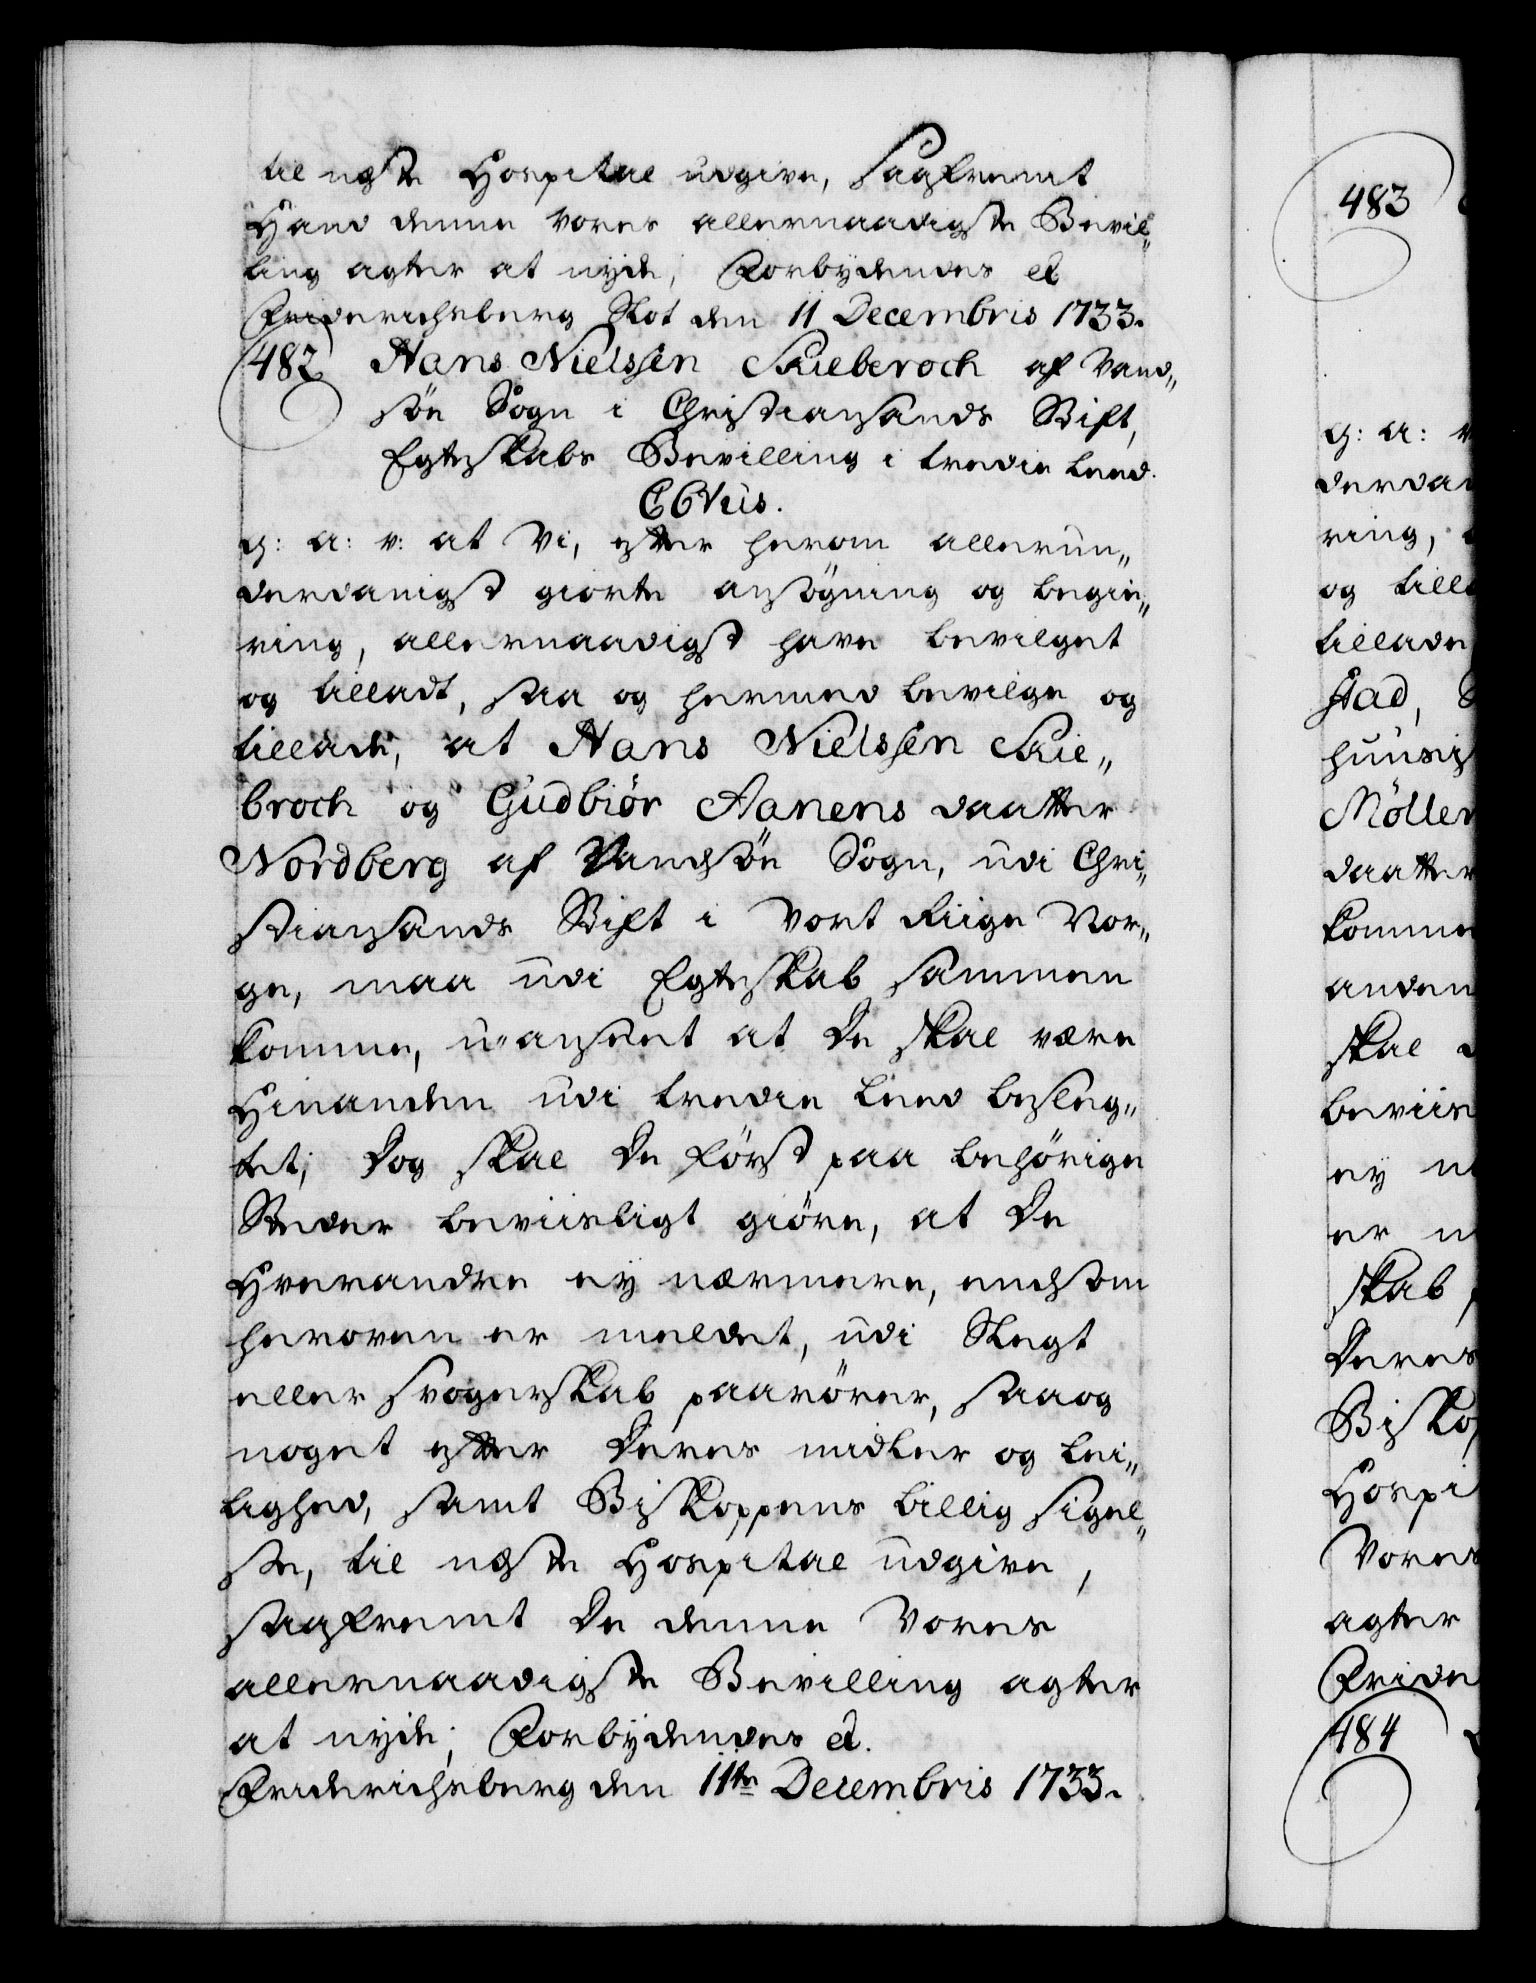 til neste Hospital udgive, saafremt
Hand denne vores allernaadigste Bevil„
ling agter at nyde, Forbydendes et
Friderichsberg Slot den 11 Decembris 1733.
482 Hans Nielssen Skieberoch af Vand„
söe Sogn i Christiansands Stift,
Egteskabs Bevilling i tredie Leed.
C6tus.
g: a: v: at Vi, efter herom allerun„
derdanigst giorte ansögning og begie„
ring, allernaadigst have bevilget
og tilladt, saa og hermed bevilge og
tillade, at Hans Nielssen Skie„
broch og Gudbiör Aanens daatter
Nordberg af Vandsöe Sogn, udi Chri„
stiansands Stift i Vort Riige Nor„
ge, maa udi Egteskab sammen
komme, u-anseet at De skal være
Hinanden udi tredie Leed besleg„
tet; Dog skal De först paa behörige
Steder beviisligt giöre, at De
Hverandre ey nærmere, end som
heroven er meldet, udi Slegt
eller Svogerskab paarörer, saa og
noget efter Deres midler og Lei„
lighed, samt Biskoppens billig sigel„
se, til neste Hospital udgive,
saafremt De denne Vores
allernaadigste Bevilling agter
at nyde; Forbydendes et.
Friderichsberg den 11te Decembris 1733.
483
g: a: v
derda
ring,
og till
tillade
stad,
huusis
Möller
daatter
komme
anden
skal
beviis
ey
er
skab
Deres
Bisko
Hospi
Vores
agter
Fride
484